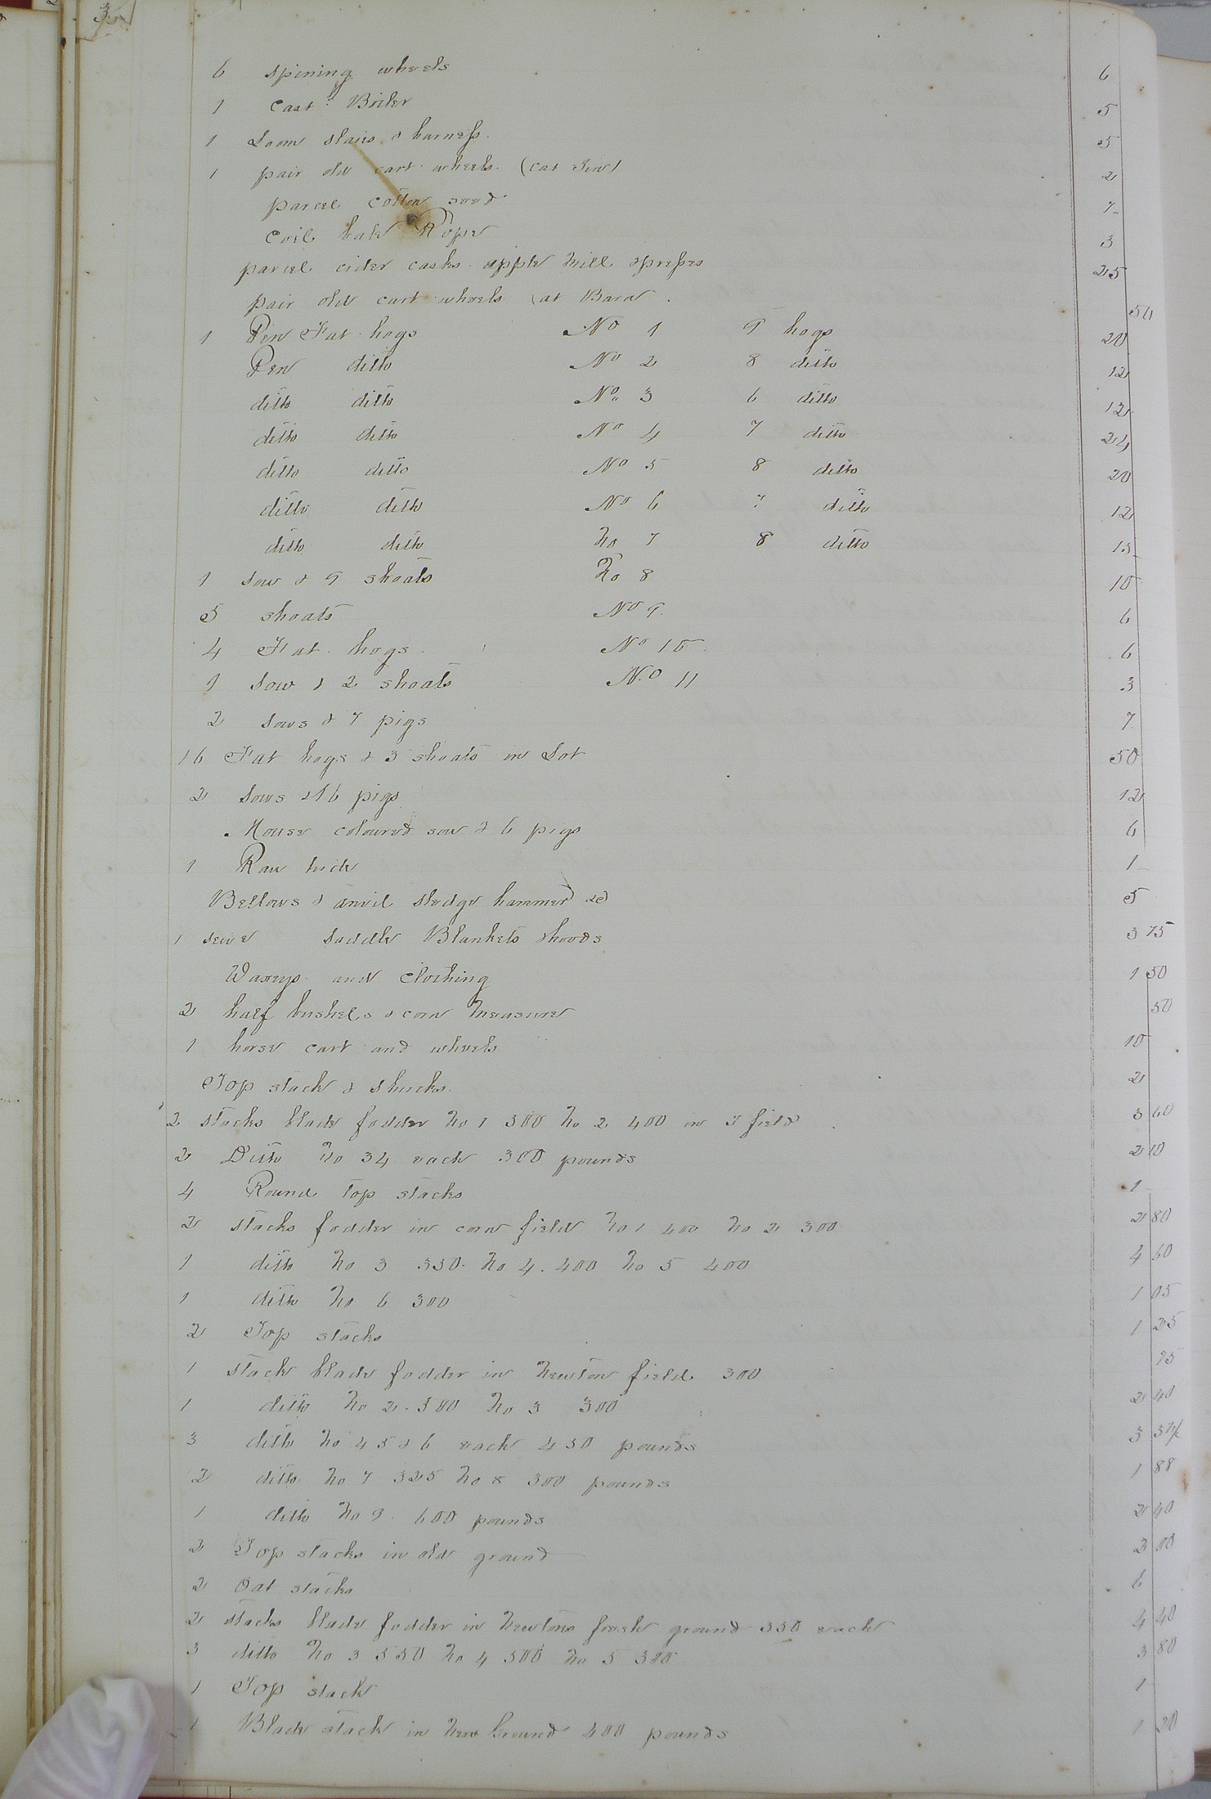 3
6 spining wheels 6
1 Cast Boiler 5
1 Loom slaies & harness 5
1 pair old cart wheels (cat 2
parcel cotton seed 7
Coil bale Rope 3
parcel cider casks apple mill & presses 25
pair old cart wheels at Barn 50
1 Pen Fat hogs No 1 9 hogs 20
Pen ditto No 2 8 ditto 12
ditto ditto No 3 6 ditto 12
ditto ditto No 4 7 ditto 24
ditto ditto No 5 8 ditto 20
ditto ditto No 6 ditto 12
ditto ditto No 7 8 ditto 15
1 Sow & 9 shoats No 8 10
5 shoats No 9 6
4 Fat hogs No 10 6
1 Sow & 2 shoats No 11 3
2 Sows & 7 pigs 7
16 Fat hogs & 3 shoats in Lot 50
2 Sows & 16 pigs 12
Mouse coloured sow & 6 pigs 6
1 Raw hide 1
Bellows & anvil sledge hammer &c 5
1 Saddle Blankets 3 75
and clothing 1 50
2 half bushels & corn measure 50
1 horse cart and wheels 10
Top stack & shucks 2
2 stacks blade fodder No 1 500 No 2 400 in field 3 60
2 Ditto No 3 4 each 300 pounds 2 10
4 Round top stacks 1
2 stacks fodder in corn field No 1 400 No 2 300 2 80
1 ditto No 3 350 No 4 400 No 5 400 4 60
1 ditto No 6 300 1 05
2 Top stacks 1 25
1 stack blade fodder in Newton field 300 75
1 ditto No 2 380 No 3 300 2 40
3 ditto No 4 5 & 6 each 450 pounds 3
2 ditto No 7 325 No 8 300 pounds 1 88
1 ditto No 9 600 pounds 2 40
2 Top stacks in old ground 2 00
2 Oat stacks 6
2 stacks blade fodder in Newtons fresh ground 550 each 4 40
3 ditto No 3 550 No 4 500 No 5 300 3 80
1 Top stack 1
1 Blade stack in New Ground 400 pounds 1 20